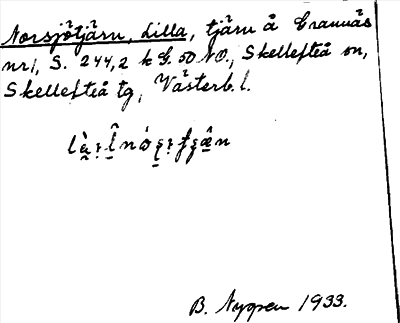 Norsjötjärn, Lilla, tjärn å Grannäs
nr 1, S. 244,2 k G. 50 NO., Skellefteå sn,
Skellefteå tg, Västerb. l.
B. Nygren 1933.